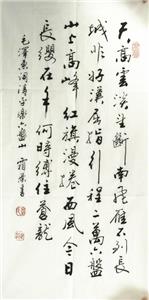 天高雲淡望斷南飛雁不到長
城非好漢屈指行程二萬六盤
山上高峰紅旗漫捲西風今日
長纓在手何時縛住蒼龍
毛澤東詞清平樂六盤山